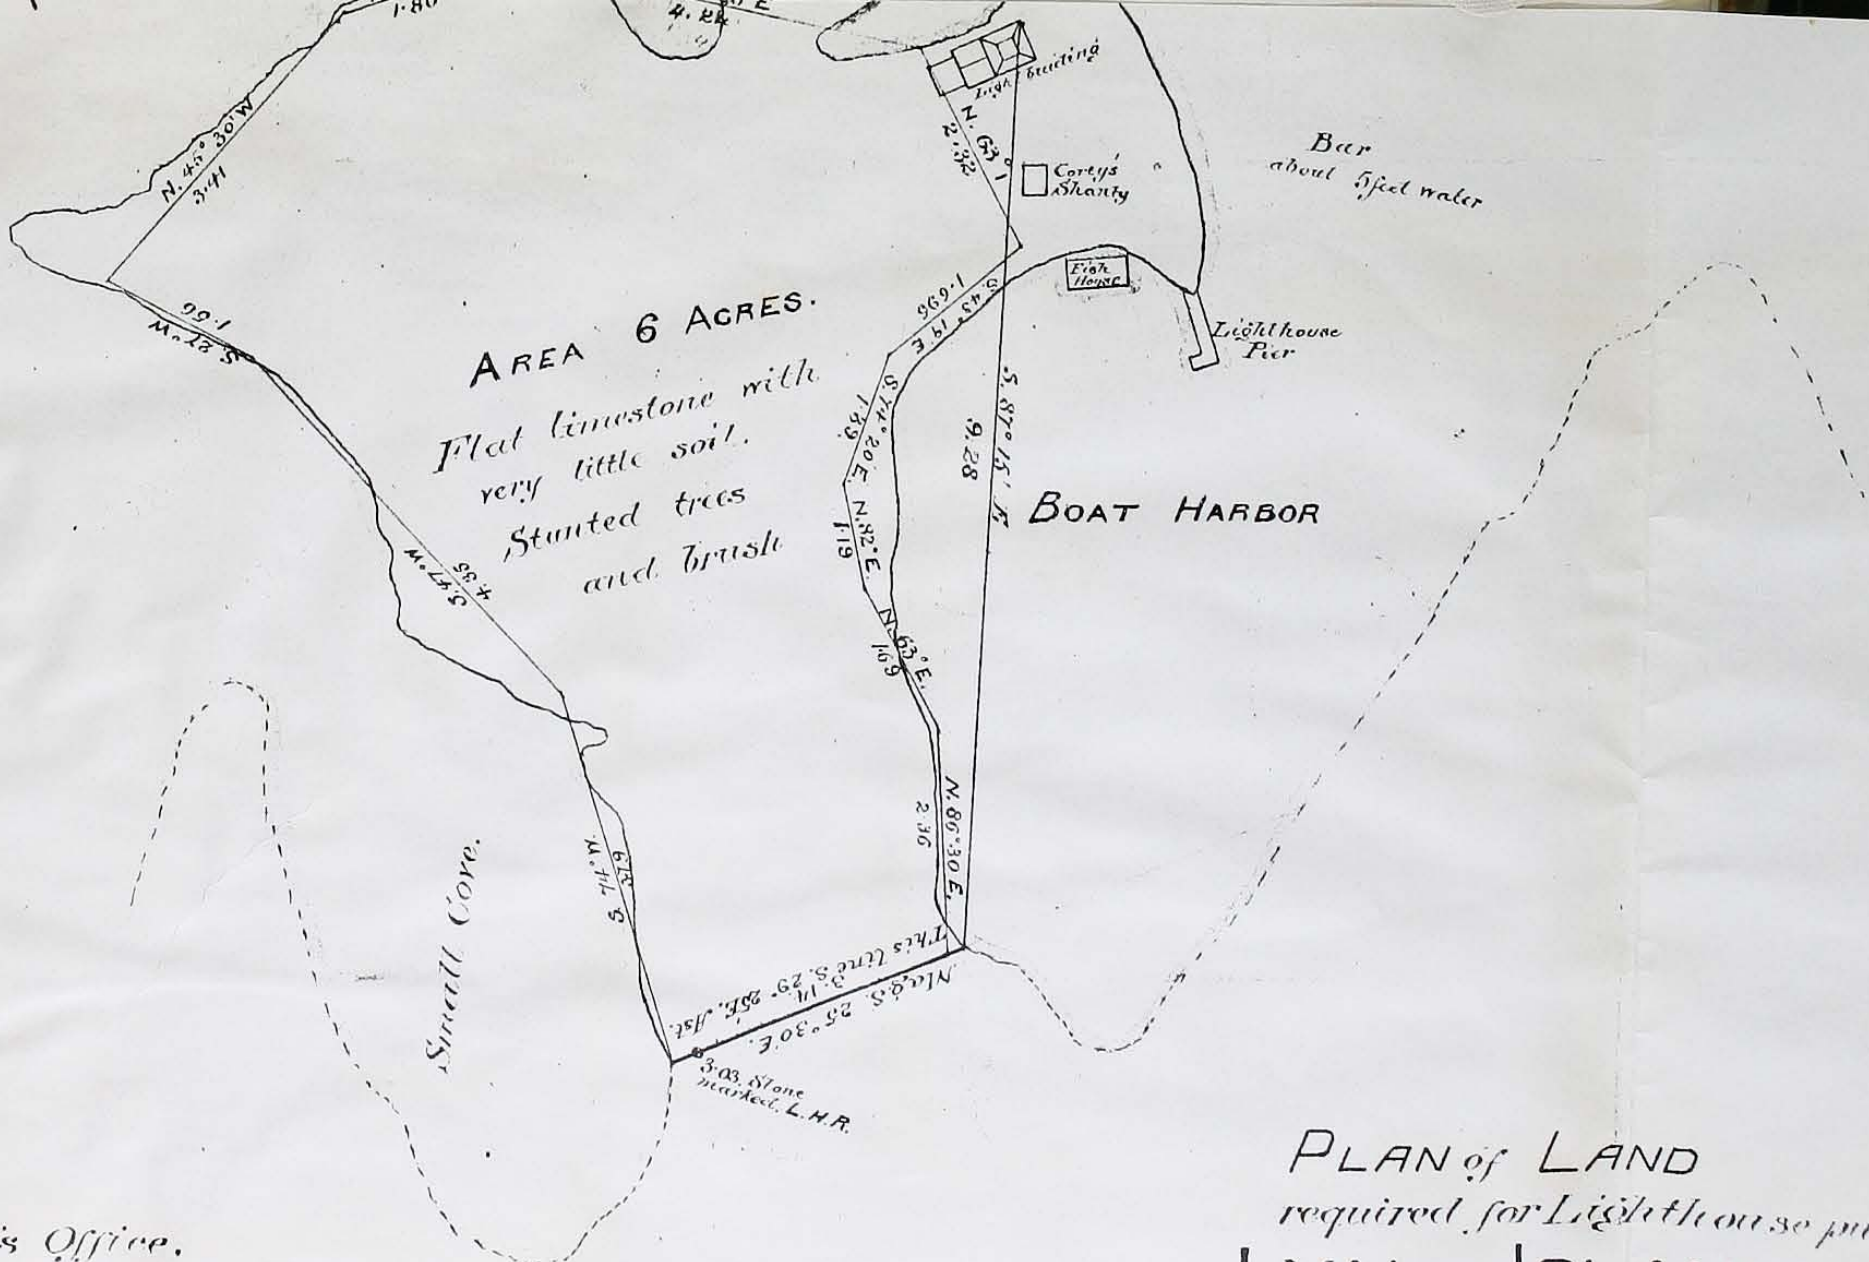 1.80
4.24
E
Light building
N. 45° 30' W
3.41
N. 63°
2.32
Corey's
Shanty
Bar
about 5 feet water
Fish
House
Lighthouse
Pier
S. 27° W
1.56
S. 45° 19' E
1.696
AREA 6 ACRES.
Flat limestone with
very little soil.
Stunted trees
and brush
S. 74° 20' E.
1.89.
N. 82° E.
1.19
S. 87° 15' E
9.28
BOAT HARBOR
S. 47° W
4.35
N. 63° E.
1.69
N. 86° 30 E.
2.36
Small Cove.
S. 74° W.
This line S. 29° 25' E. Ast.
3.14
Mag. S. 25° 30' E.
3.03. Stone
marked, L.H.R.
PLAN of LAND
required for Lighthouse pu
s Office.